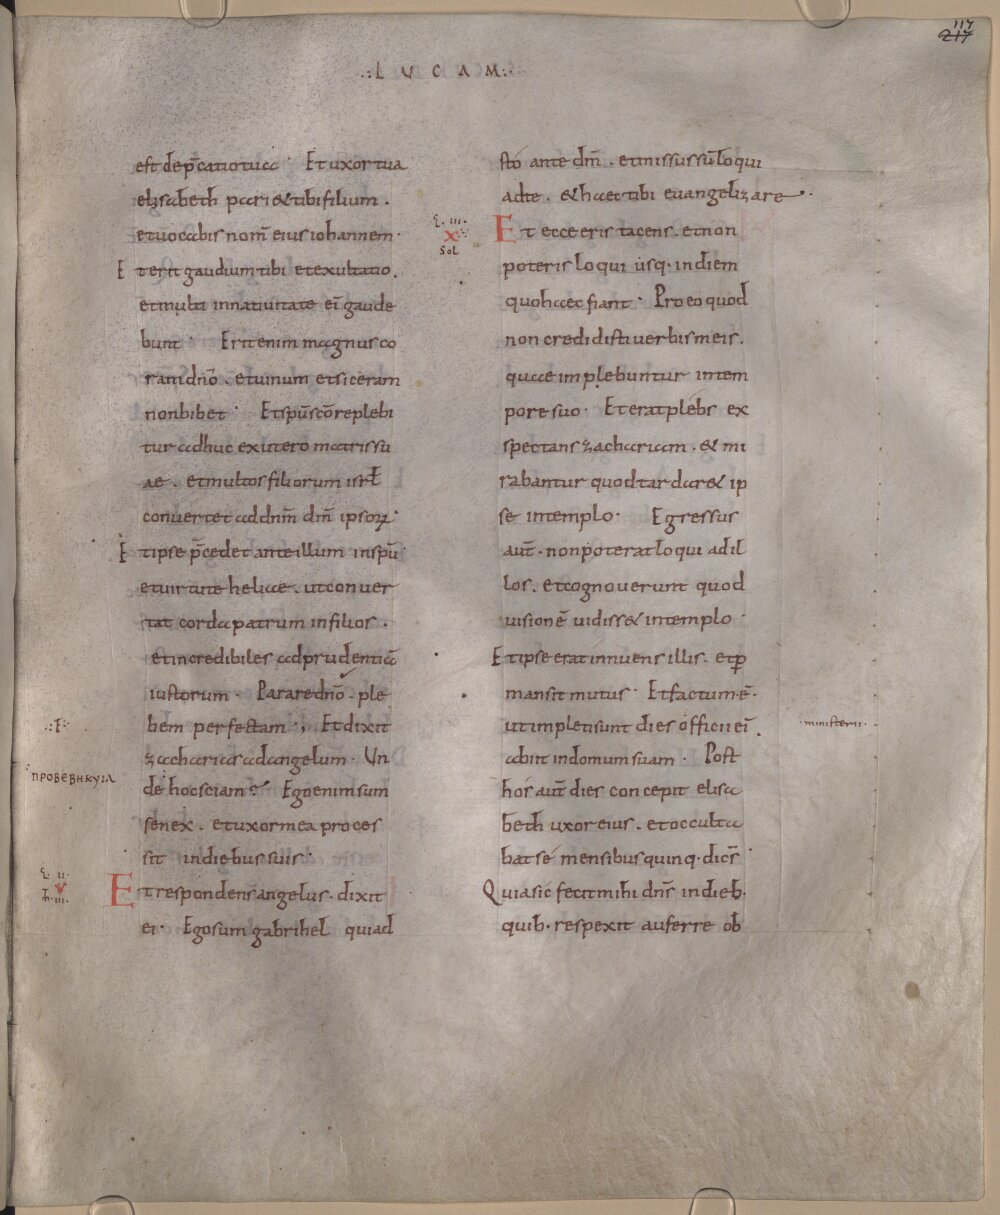 117
217
.:LUCAM:.
est dep̄catio tua · Et uxor tua
elisabeth pari& tibi filium .
et uocabis nom̄ eius iohannem ·
Et erit gaudium tibi et exultatio .
et multi in natiuitate ei᷒ gaude
bunt · Erit enim magnus co
ram dn̄o . et uinum et siceram
non bibet · Et sp̄u sc̄o replebi
tur adhuc ex utero matris su
ae . et multos filiorum isrł
conuertet ad dn̄m dm̄ ipsoꝝ ·
Et ipse p̄cedet ante illum in sp̄u ·
et uirtute heliae . ut conuer
tat corda patrum in filios .
et incredibiles ad prudentiā
iustorum · Parare dn̄o ple
bem perfectam ·, Et dixit
zacharias ad angelum · Un
de hoc sciam? Ego enim sum
senex . et uxor mea proces
sit in diebus suis ·
Et respondens angelus . dixit
ei · Ego sum gabrihel qui ad
.:I:.
II
V
III
III
X
Sol
sto ante dm̄ . et missus sū loqui
ad te . & haec tibi euangelizare .
Et ecce eris tacens . et non
poteris loqui usq· in diem
quo haec fiant · Pro eo quod
non credidisti uerbis meis .
quae implebuntur in tem
pore suo · Et erat plebs ex
spectans zachariam . & mi
rabantur quod tardar& ip
se in templo · Egressus
aut̄ · non poterat loqui ad il
los . et cognouerunt quod
uisionē uidiss& in templo ·
Et ipse erat innuens illis . et ꝑ
mansit mutus · Et factum ē ·
ut impleti sunt dies officii ei᷒ .
ministerii .
abiit in domum suam · Post
hos aut̄ dies concepit elisa
beth uxor eius . et occulta
bat se mensibus quinq· dicēs
Quia sic fecit mihi dn̄s in dieb·
quib· respexit auferre ob